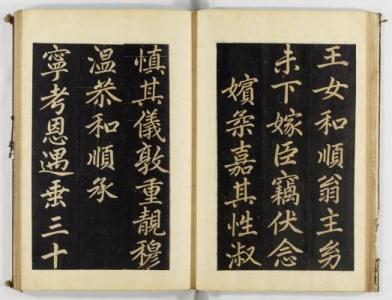 王女和順翁主幼
未下嫁臣竊伏念
嬪粲嘉其性淑
慎其儀敦重靚穆
温恭和順承
寧考恩遇垂三十